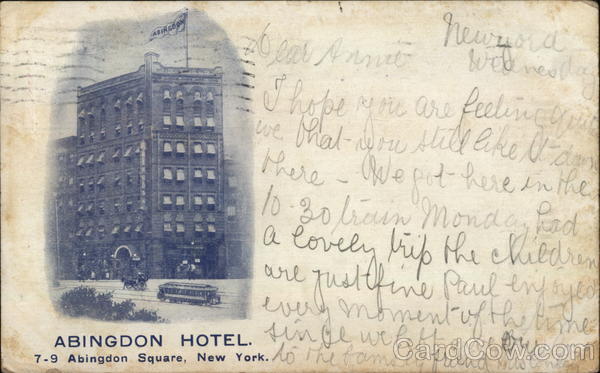 ABINGDON
ABINGDON HOTEL.
7-9 Abingdon Square, New York.
Wednesday
Dear Annie
I hope you are feeling
that you still like it down
there - We got here in the
10-30 train Monday had
a lovely trip the children
are just fine Paul enjoyed
every moment of the time
since we
to the
CardCow.com